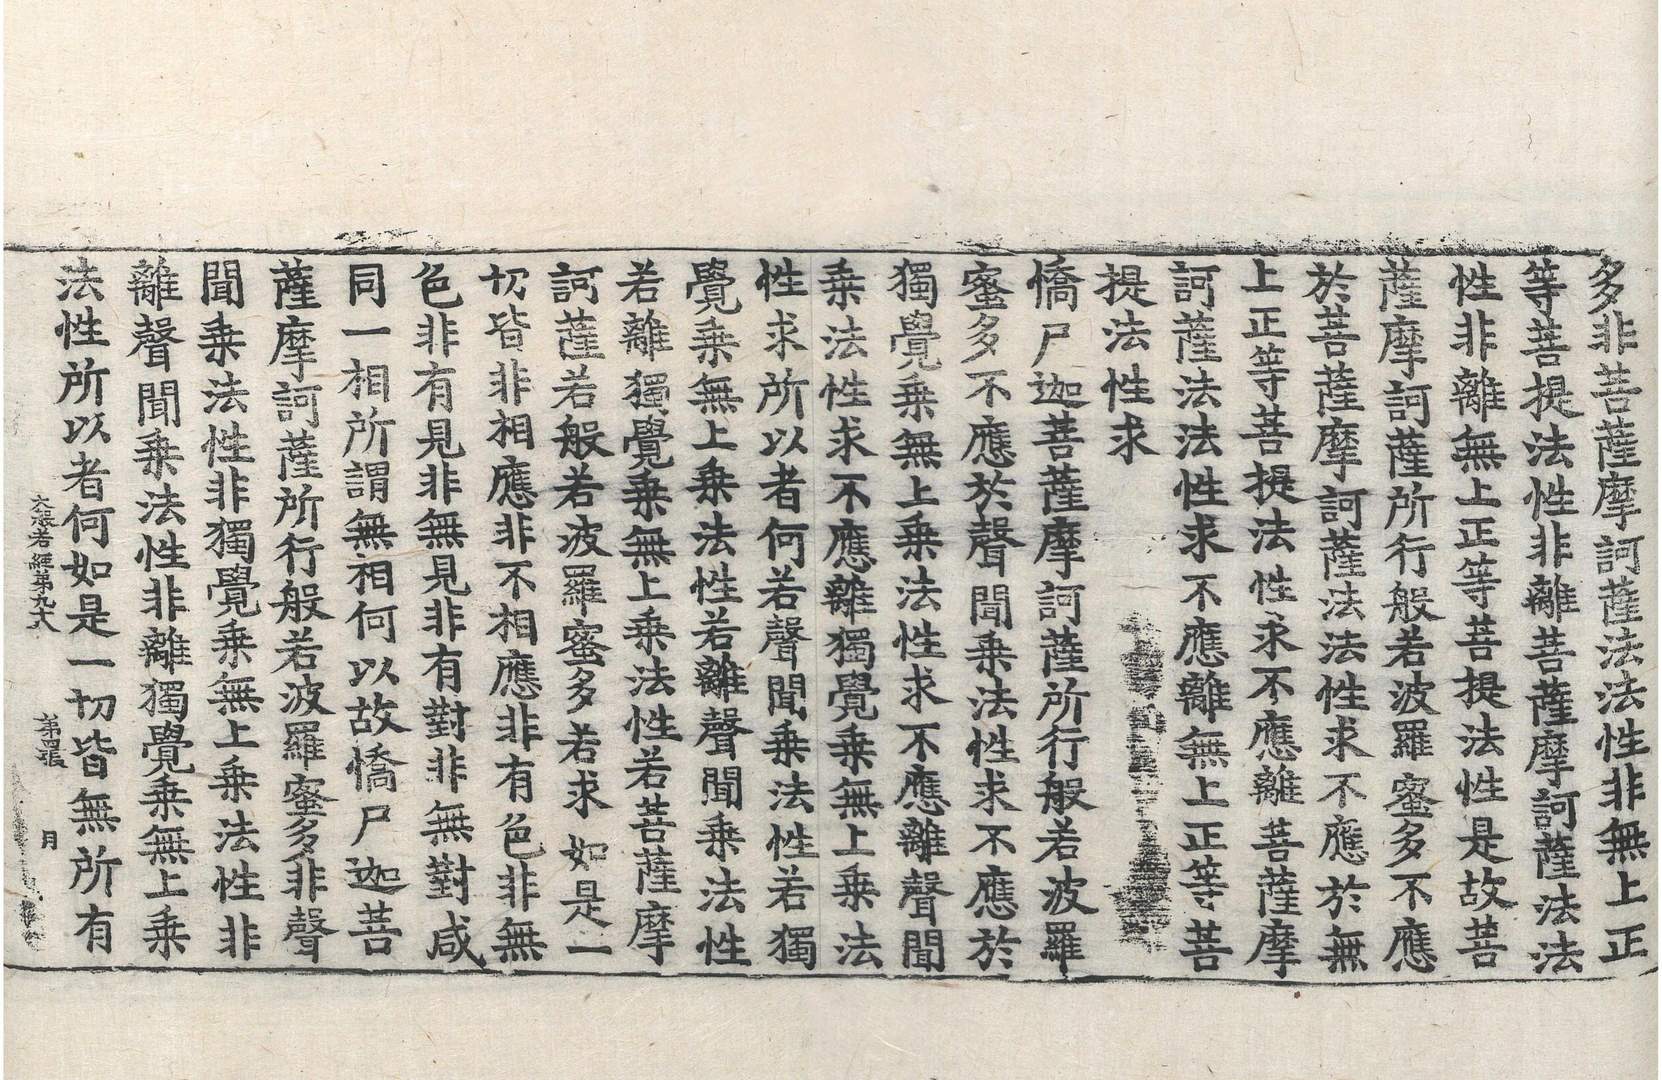 多非菩薩摩訶薩法法性非無上正
等菩提法性非離菩薩摩訶薩法法
性非離無上正等菩提法性是故菩
薩摩訶薩所行般若波羅蜜多不應
於菩薩摩訶薩法法性求不應於無
上正等菩提法性求不應離菩薩摩
訶薩法法性求不應離無上正等菩
提法性求
憍尸迦菩薩摩訶薩所行般若波羅
蜜多不應於聲聞乗法性求不應於
獨覺乗無上乗法性求不應離聲聞
乗法性求不應離獨覺乗無上乗法
性求所以者何若聲聞乗法性若獨
覺乗無上乗法性若離聲聞乗法性
若離獨覺乗無上乗法性若菩薩摩
訶薩若般若波羅蜜多若求如是一
切皆非相應非不相應非有色非無
色非有見非無見非有對非無對咸
同一相所謂無相何以故憍尸迦菩
薩摩訶薩所行般若波羅蜜多非聲
聞乗法性非獨覺乗無上乗法性非
離聲聞乗法性非離獨覺乗無上乗
大般若經第九十八 第四張 月
法性所以者何如是一切皆無所有